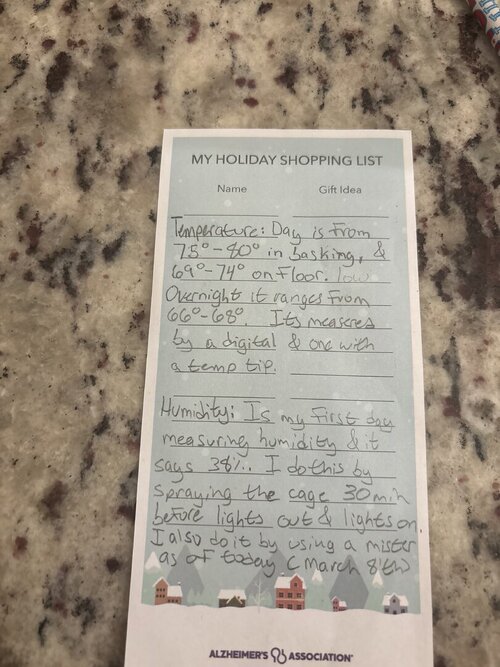 MY HOLIDAY SHOPPING LIST
Name Gift Idea
Temperature: Day is from
75°-80° in basking, &
69°-74° on Floor. low
Overnight it ranges from
66°-68°. Its measeres
by a digital & one with
a temp tip.
Humidity: Is my first day
measuring humidity & it
says 38%. I do this by
spraying the cage 30 min
before lights out & lights on.
I also do it by using a mister
as of today (March 8th)
ALZHEIMER'S ASSOCIATION®